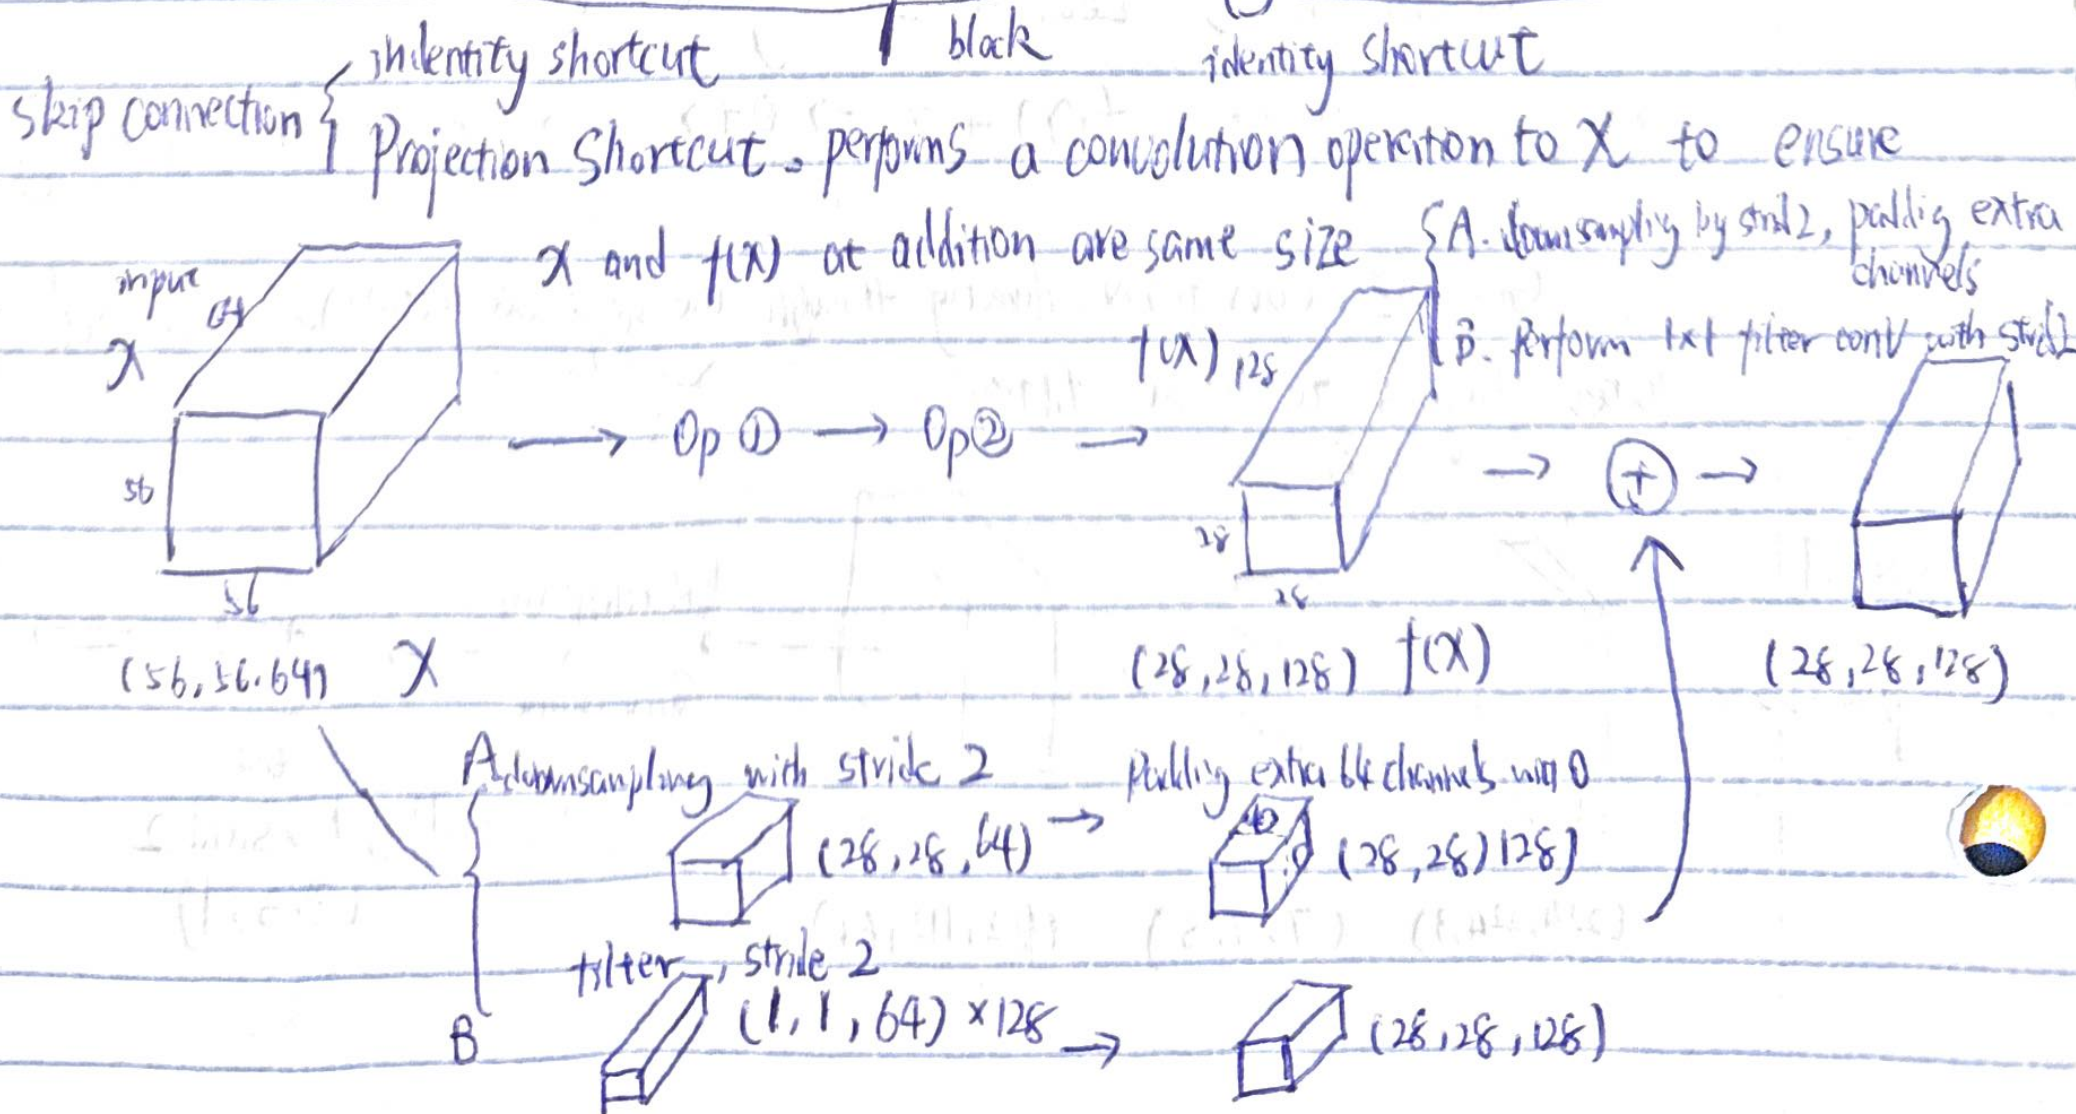 indentity shortcut
block
identity shortcut
skip connection
Projection Shortcut. performs a convolution operation to X to ensure
x and f(x) at addition are same size
A. downsampling by strid2, padding extra
channels
B. Perform 1x1 filter conv with strid2
input
64
x
f(x) 128
Op ① → Op ② →
→ + →
56
56
28
28
(56, 56, 64) X
(28, 28, 128) f(x)
(28, 28, 128)
A downsampling with stride 2
Padding extra 64 channels with 0
(28, 28, 64) →
0
(28, 28, 128)
filter, stride 2
(1, 1, 64) ×128 →
(28, 28, 128)
B